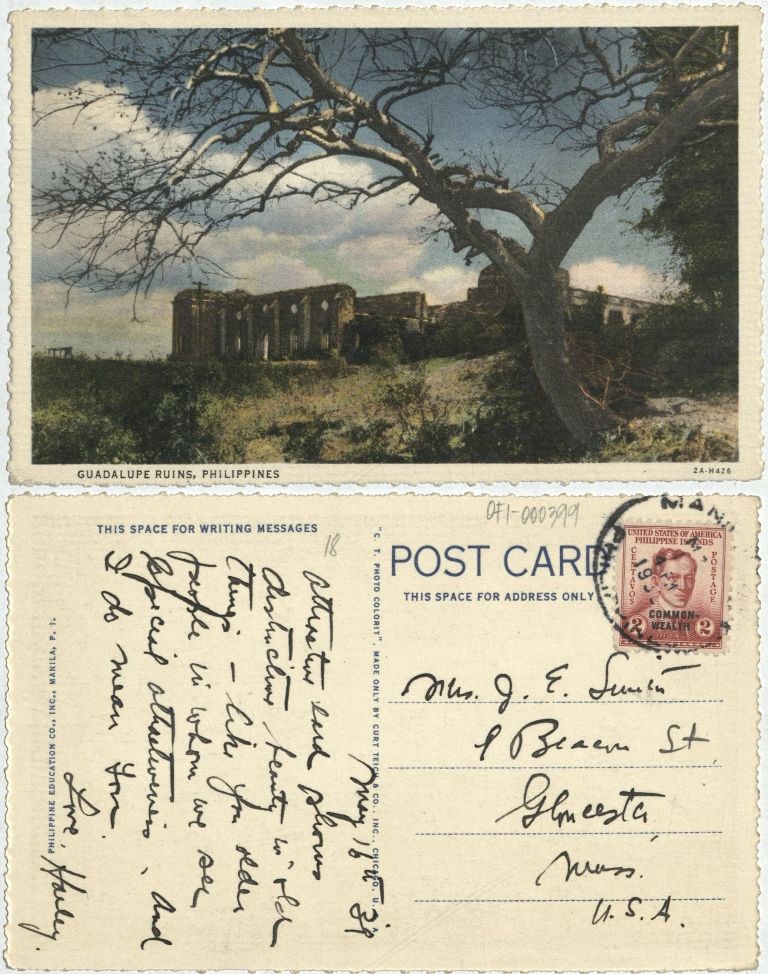 GUADALUPE RUINS, PHILIPPINES
2A-H426
THIS SPACE FOR WRITING MESSAGES
18
OF1-000399
POST CARD
THIS SPACE FOR ADDRESS ONLY
MANI
UNITED STATES OF AMERICA
PHILIPPINE ISLANDS
CENTAVOS
POSTAGE
COMMON-
WEALTH
2 2
May 16
attractive card shows
distinctive beauty in old
things – like you older
people in whom we see
special attractiveness, and
I do mean you.
Love, Harley.
"C. T. PHOTO COLORIT" MADE ONLY BY CURT TEICH & CO., INC., CHICAGO, U.
PHILIPPINE EDUCATION CO., INC., MANILA, P. I.
Mrs. J. E.
1 Beacon St
Gloucester
Mass.
U.S.A.